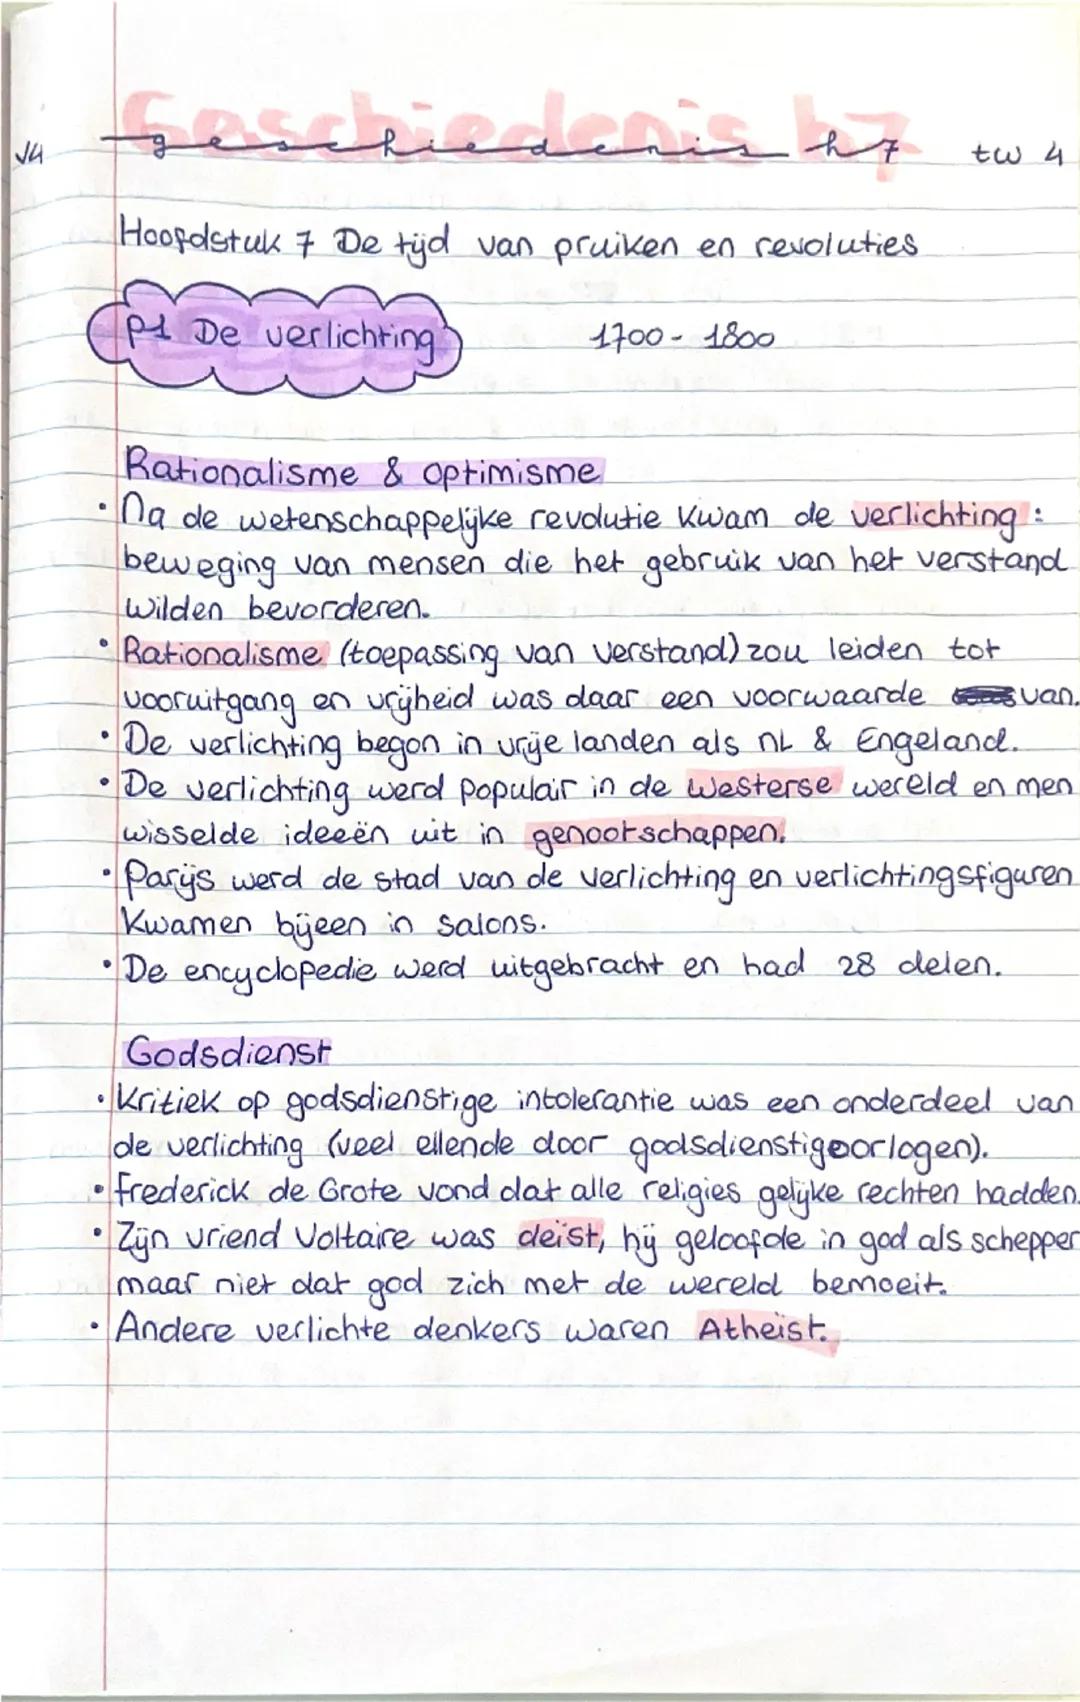 Geschiedenis h7
V4 geschiedenis h7 tw 4
Hoofdstuk 7 De tijd van pruiken en revoluties
P1 De verlichting 1700 - 1800
Rationalisme & optimisme
• Na de wetenschappelijke revolutie kwam de verlichting :
beweging van mensen die het gebruik van het verstand
wilden bevorderen.
• Rationalisme (toepassing van verstand) zou leiden tot
vooruitgang en vrijheid was daar een voorwaarde van.
• De verlichting begon in vrije landen als NL & Engeland.
• De verlichting werd populair in de westerse wereld en men
wisselde ideeën uit in genootschappen.
• Parijs werd de stad van de verlichting en verlichtingsfiguren
kwamen bijeen in salons.
• De encyclopedie werd uitgebracht en had 28 delen.
Godsdienst
• Kritiek op godsdienstige intolerantie was een onderdeel van
de verlichting (veel ellende door godsdienstigeoorlogen).
• Frederick de Grote vond dat alle religies gelijke rechten hadden.
• Zijn vriend Voltaire was deïst, hij geloofde in god als schepper
maar niet dat god zich met de wereld bemoeit.
• Andere verlichte denkers waren Atheïst.